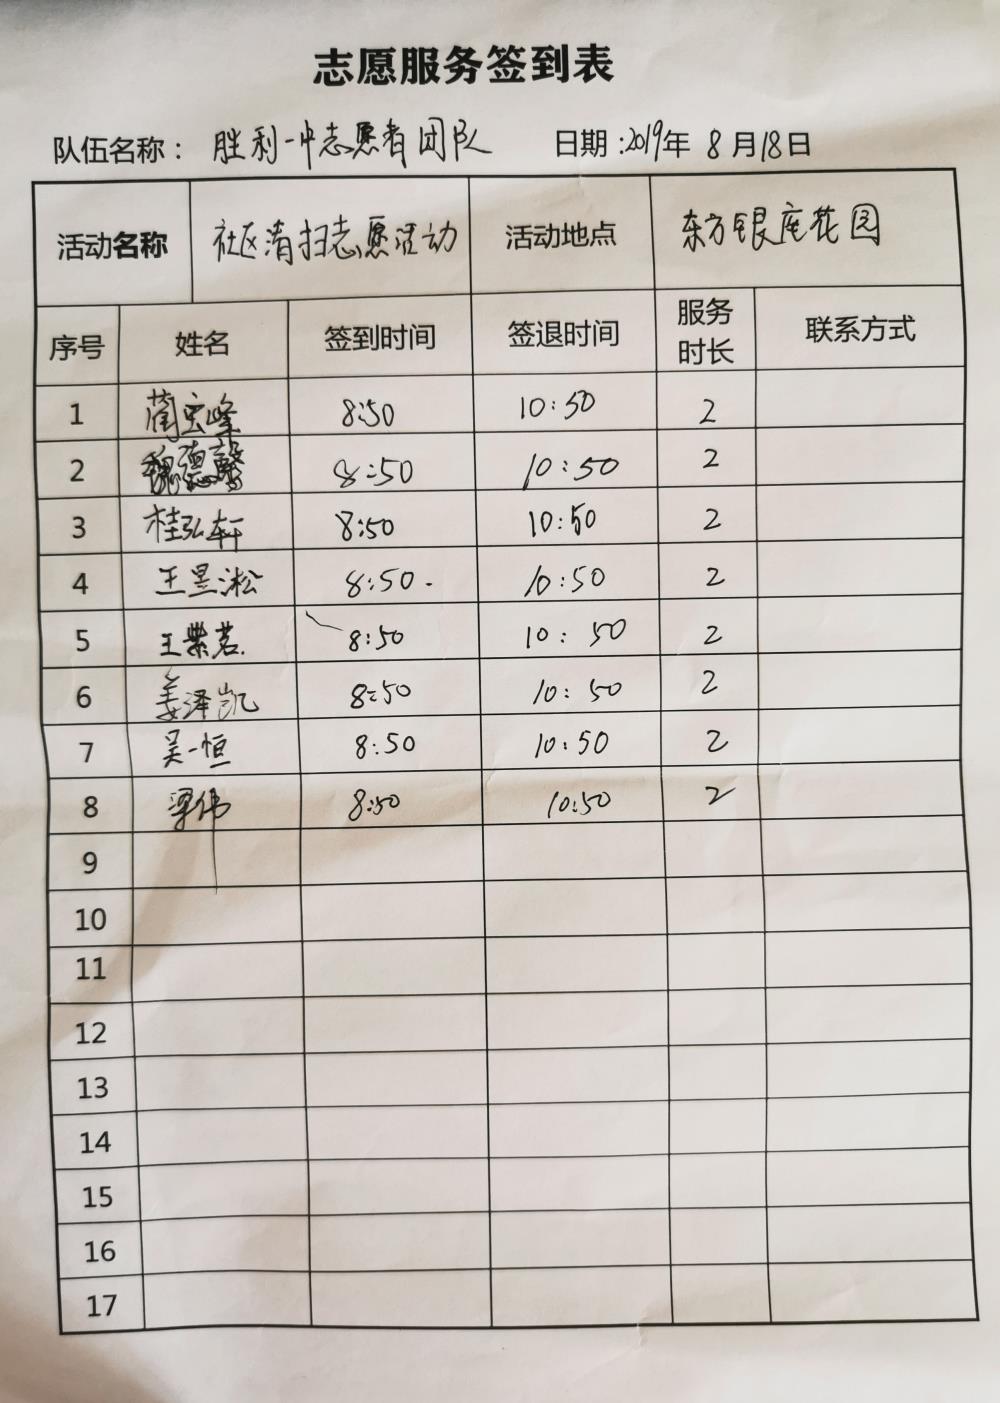 志愿服务签到表
队伍名称：胜利一中志愿者团队 日期：2019年 8月18日
活动名称 社区清扫志愿活动 活动地点 东方银座花园
序号 姓名 签到时间 签退时间 服务时长 联系方式
1 蔺宝峰 8:50 10:50 2
2 魏德馨 8:50 10:50 2
3 桂弘轩 8:50 10:50 2
4 王昱淞 8:50 10:50 2
5 王紫茗 8:50 10:50 2
6 姜泽凯 8:50 10:50 2
7 吴一恒 8:50 10:50 2
8 梁伟 8:50 10:50 2
9
10
11
12
13
14
15
16
17